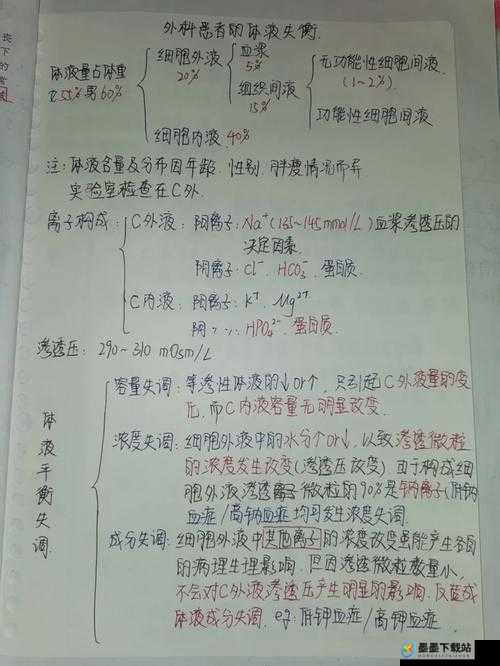 外科患者的体液失衡.
体液量占体重 55% 男60%
细胞外液 20%
血浆 5%
组织间液 15%
无功能性细胞间液 (1~2%)
功能性细胞间液
细胞内液 40%
注: 体液含量及分布因年龄. 性别. 胖瘦情况而异
实验室检查在C外.
离子构成:
C外液: 阳离子: Na⁺(135~145mmol/L) 血浆渗透压的
决定因素
阴离子: Cl⁻. HCO₃⁻. 蛋白质.
C内液: 阳离子: K⁺. Mg²⁺
阴 〃 〃: HPO₄²⁻. 蛋白质.
渗透压: 290~310 mOsm/L
体液平衡失调
容量失调: 等渗性体液的↓or↑, 只引起C外液量的变
化, 而C内液容量无明显改变.
浓度失调: 细胞外液中的水分↑or↓, 以致渗透微粒
的浓度发生改变(渗透压改变) 由于构成细
胞外液渗透离子微粒的90%是钠离子(低钠
血症/高钠血症 均可发生浓度失调.
成分失调: 细胞外液中其他离子的浓度改变虽能产生各自
的病理生理影响. 但因渗透微粒数量小,
不会对C外液渗透压产生明显的影响. 仅造成
体液成分失调. eg: 低钾血症/高钾血症
墨墨下载站